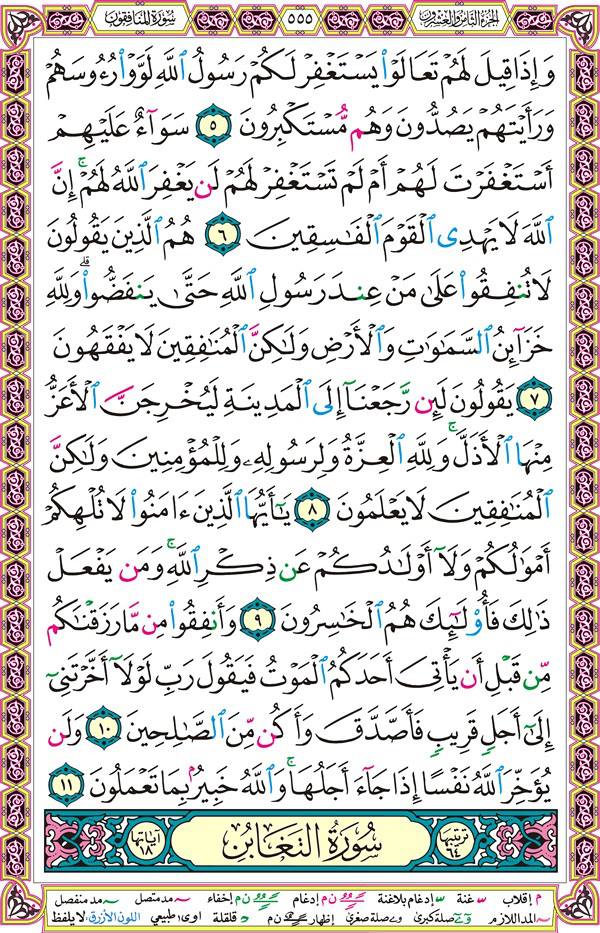 الجزء الثامن والعشرون
٥٥٥
سورة المنافقون
وَإِذَا قِيلَ لَهُمْ تَعَالَوْا۟ يَسْتَغْفِرْ لَكُمْ رَسُولُ ٱللَّهِ لَوَّوْا۟ رُءُوسَهُمْ
وَرَأَيْتَهُمْ يَصُدُّونَ وَهُم مُّسْتَكْبِرُونَ ٥ سَوَآءٌ عَلَيْهِمْ
أَسْتَغْفَرْتَ لَهُمْ أَمْ لَمْ تَسْتَغْفِرْ لَهُمْ لَن يَغْفِرَ ٱللَّهُ لَهُمْ ۚ إِنَّ
ٱللَّهَ لَا يَهْدِى ٱلْقَوْمَ ٱلْفَـٰسِقِينَ ٦ هُمُ ٱلَّذِينَ يَقُولُونَ
لَا تُنفِقُوا۟ عَلَىٰ مَنْ عِندَ رَسُولِ ٱللَّهِ حَتَّىٰ يَنفَضُّوا۟ ۗ وَلِلَّهِ
خَزَآئِنُ ٱلسَّمَـٰوَٰتِ وَٱلْأَرْضِ وَلَـٰكِنَّ ٱلْمُنَـٰفِقِينَ لَا يَفْقَهُونَ
٧ يَقُولُونَ لَئِن رَّجَعْنَآ إِلَى ٱلْمَدِينَةِ لَيُخْرِجَنَّ ٱلْأَعَزُّ
مِنْهَا ٱلْأَذَلَّ ۚ وَلِلَّهِ ٱلْعِزَّةُ وَلِرَسُولِهِۦ وَلِلْمُؤْمِنِينَ وَلَـٰكِنَّ
ٱلْمُنَـٰفِقِينَ لَا يَعْلَمُونَ ٨ يَـٰٓأَيُّهَا ٱلَّذِينَ ءَامَنُوا۟ لَا تُلْهِكُمْ
أَمْوَٰلُكُمْ وَلَآ أَوْلَـٰدُكُمْ عَن ذِكْرِ ٱللَّهِ ۚ وَمَن يَفْعَلْ
ذَٰلِكَ فَأُو۟لَـٰٓئِكَ هُمُ ٱلْخَـٰسِرُونَ ٩ وَأَنفِقُوا۟ مِن مَّا رَزَقْنَـٰكُم
مِّن قَبْلِ أَن يَأْتِىَ أَحَدَكُمُ ٱلْمَوْتُ فَيَقُولَ رَبِّ لَوْلَآ أَخَّرْتَنِىٓ
إِلَىٰٓ أَجَلٍ قَرِيبٍ فَأَصَّدَّقَ وَأَكُن مِّنَ ٱلصَّـٰلِحِينَ ١٠ وَلَن
يُؤَخِّرَ ٱللَّهُ نَفْسًا إِذَا جَآءَ أَجَلُهَا ۚ وَٱللَّهُ خَبِيرٌۢ بِمَا تَعْمَلُونَ ١١
ترتيبها ٦٤ سُورَةُ التَّغَابُنِ آياتها ١٨
م إقلاب غنة إدغام بلاغنة ن م إدغام ن م إخفاء مد متصل مد منفصل
المد اللازم صلة كبرى صلة صغرى إظهار ن م قلقلة اوى طبيعي اللون الأزرق لا يلفظ